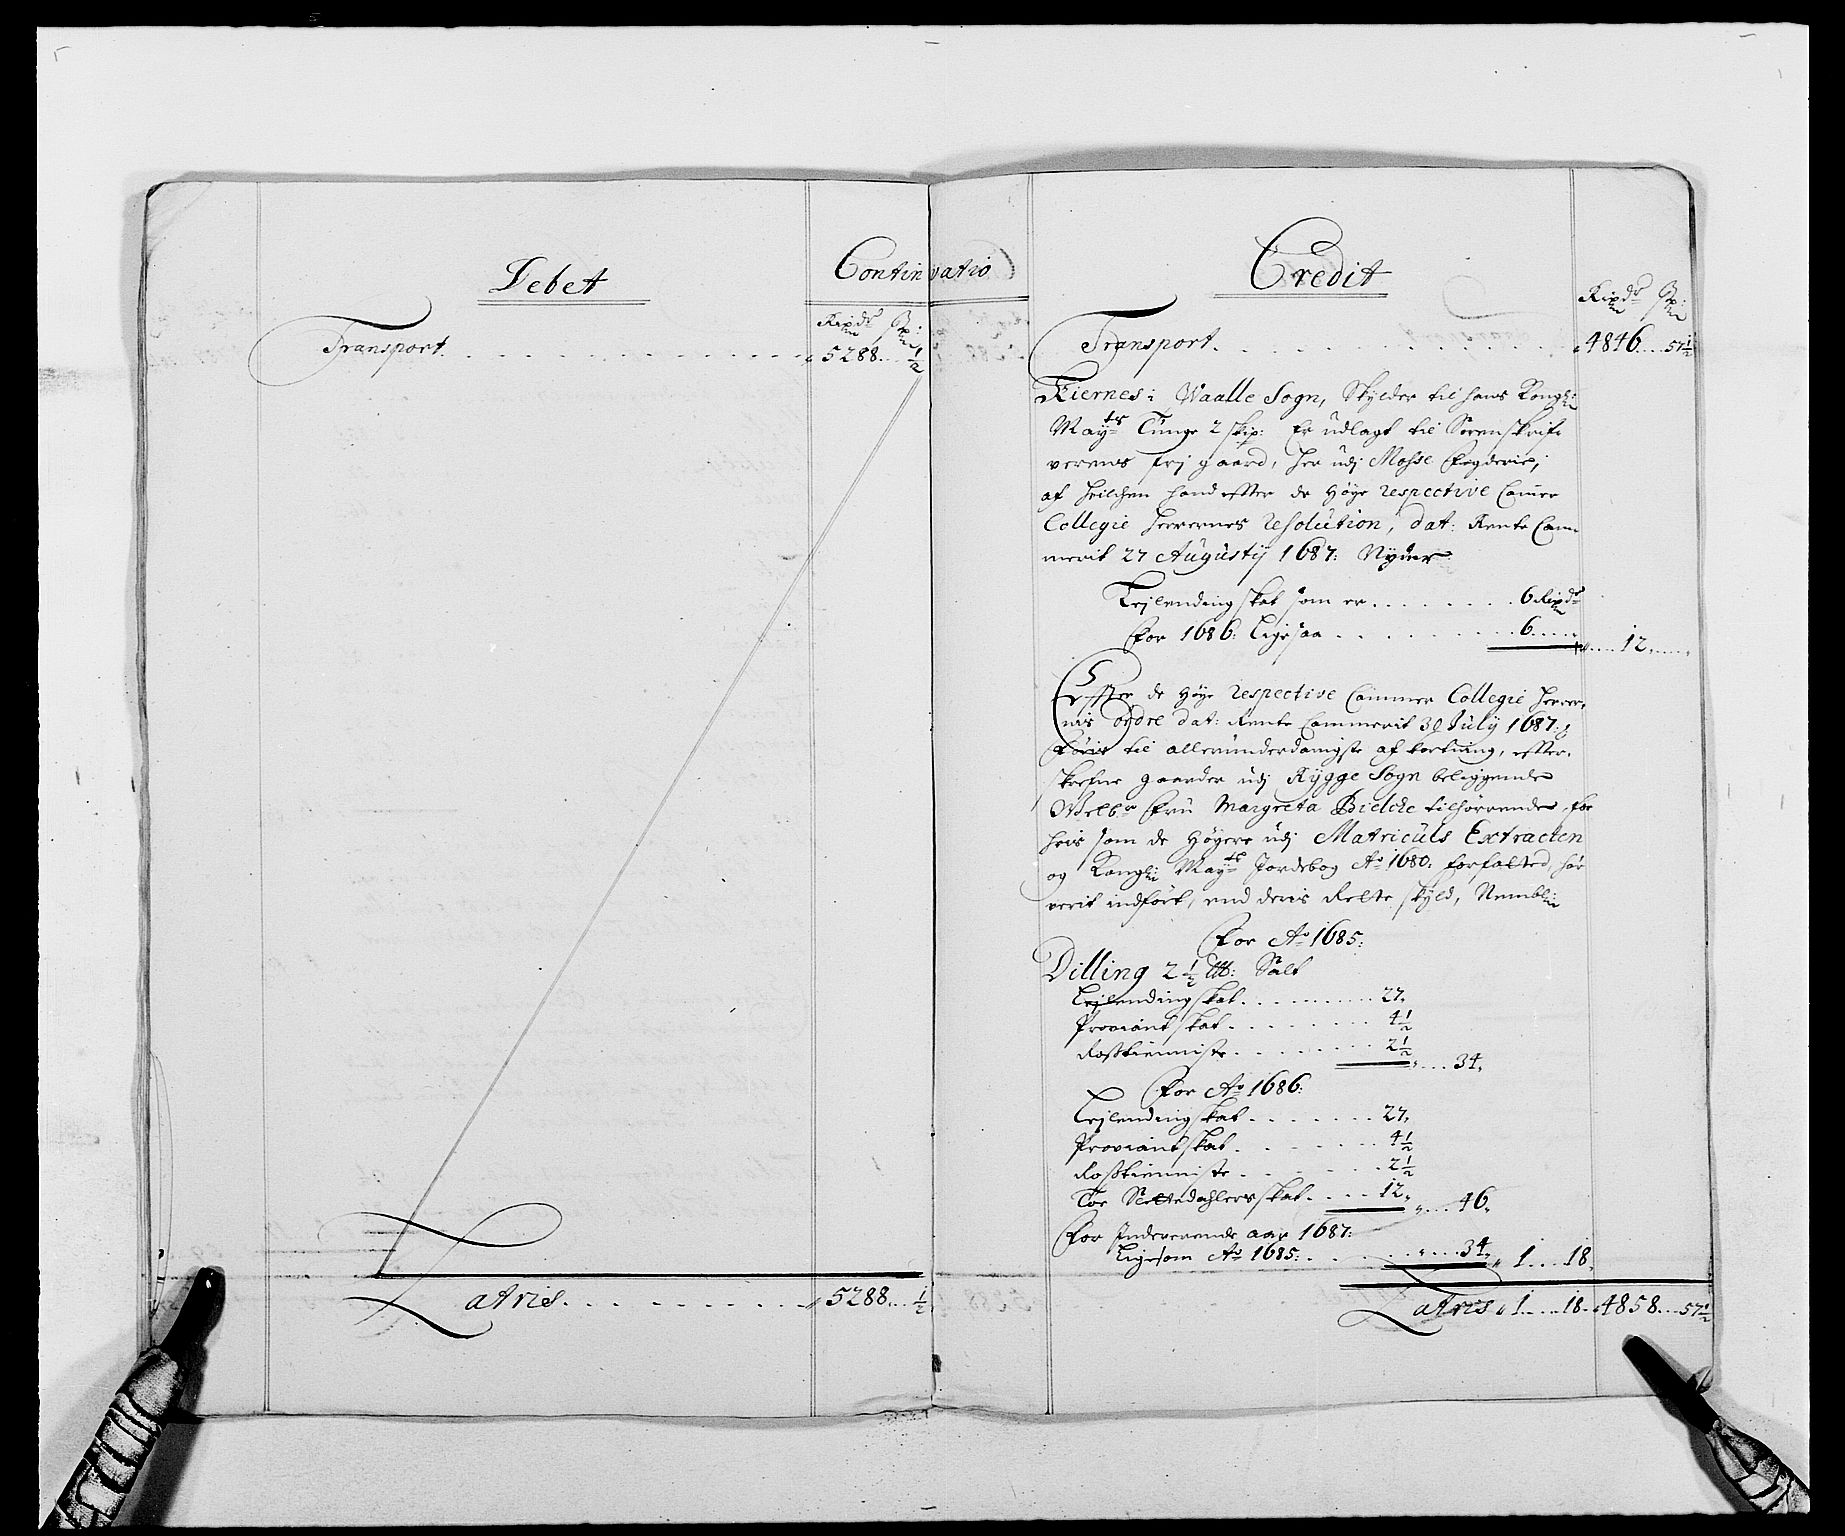 Debet
Continuatio
Rixdr
Transport. . . . . . . . . . . . . . . 5288 . . ½
Latris. . . . . . . . 5288 . . ½
Credit
Rixdr
Transport. . . . . . . . . . . . . 4846 . . . 57½
Kiernes i Waalle Sogn, Skylder til hans Kongl:
Mayts Tunge 2 skip: Er udlagt til Sorenskrif-
verens frj gaard, her udj Mosse fogderie,
af hvilchen hand effter de Høye respective Camer
Collegie Herrernes resolution, dat: Rente Cam-
merit 27 Augustij 1687: Nyder
Leylending skat som er . . . . . . . . 6 Rixdr
For 1686: Ligesaa . . . . . . . . . . 6 . . . . . 12 . . .
Effter de Høye respective Cammer Collegie Herrer-
nis ordre dat: Rente Cammerit 30 July 1687:
til allerunderdanigste af kortning, effter-
skrefne gaarder udj Rygge Sogn beliggende
Welbr Fru Margreta Bielche tilhørrende, for
hvis som de Høyere udj Matriculs Extracten
og Kongl: Mayts Jordebog Ao 1680. forfatted, har
verit indført, end deris Rette skyld, Nembl:
For Ao 1685:
Dilling 2½ Salt
Leylending skat . . . . . . . . . 27.
Proviant skat . . . . . . . . 4½
Rosstienniste . . . . . . . . 2½ . . . . 34.
For Ao 1686:
Leylending skat . . . . . . . 27.
Proviant skat . . . . . . . 4½
Rosstienniste . . . . . . . 2½
Toe Slettedahlers skat . . . . 12. . . . 46.
For Indeverende aar 1687:
Ligesom Ao 1685: . . . . . . . 34. 1 . . . 18.
Latris 1 . . . . 18. 4858 . . . 57½